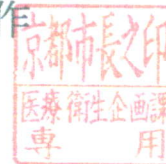 作
京都市長之印
医療衛生企画課
専用